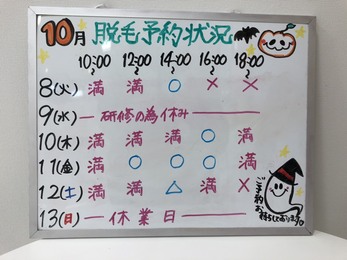 10月 脱毛予約状況
10:00~ 12:00~ 14:00~ 16:00~ 18:00~
8(火) 満 満 ○ × ×
9(水) ー研修の為休みー
10(木) 満 満 満 ○ 満
11(金) 満 ○ ○ ○ 満
12(土) 満 満 △ 満 ×
13(日) ー休業日ー
ご予約お待ちしております。